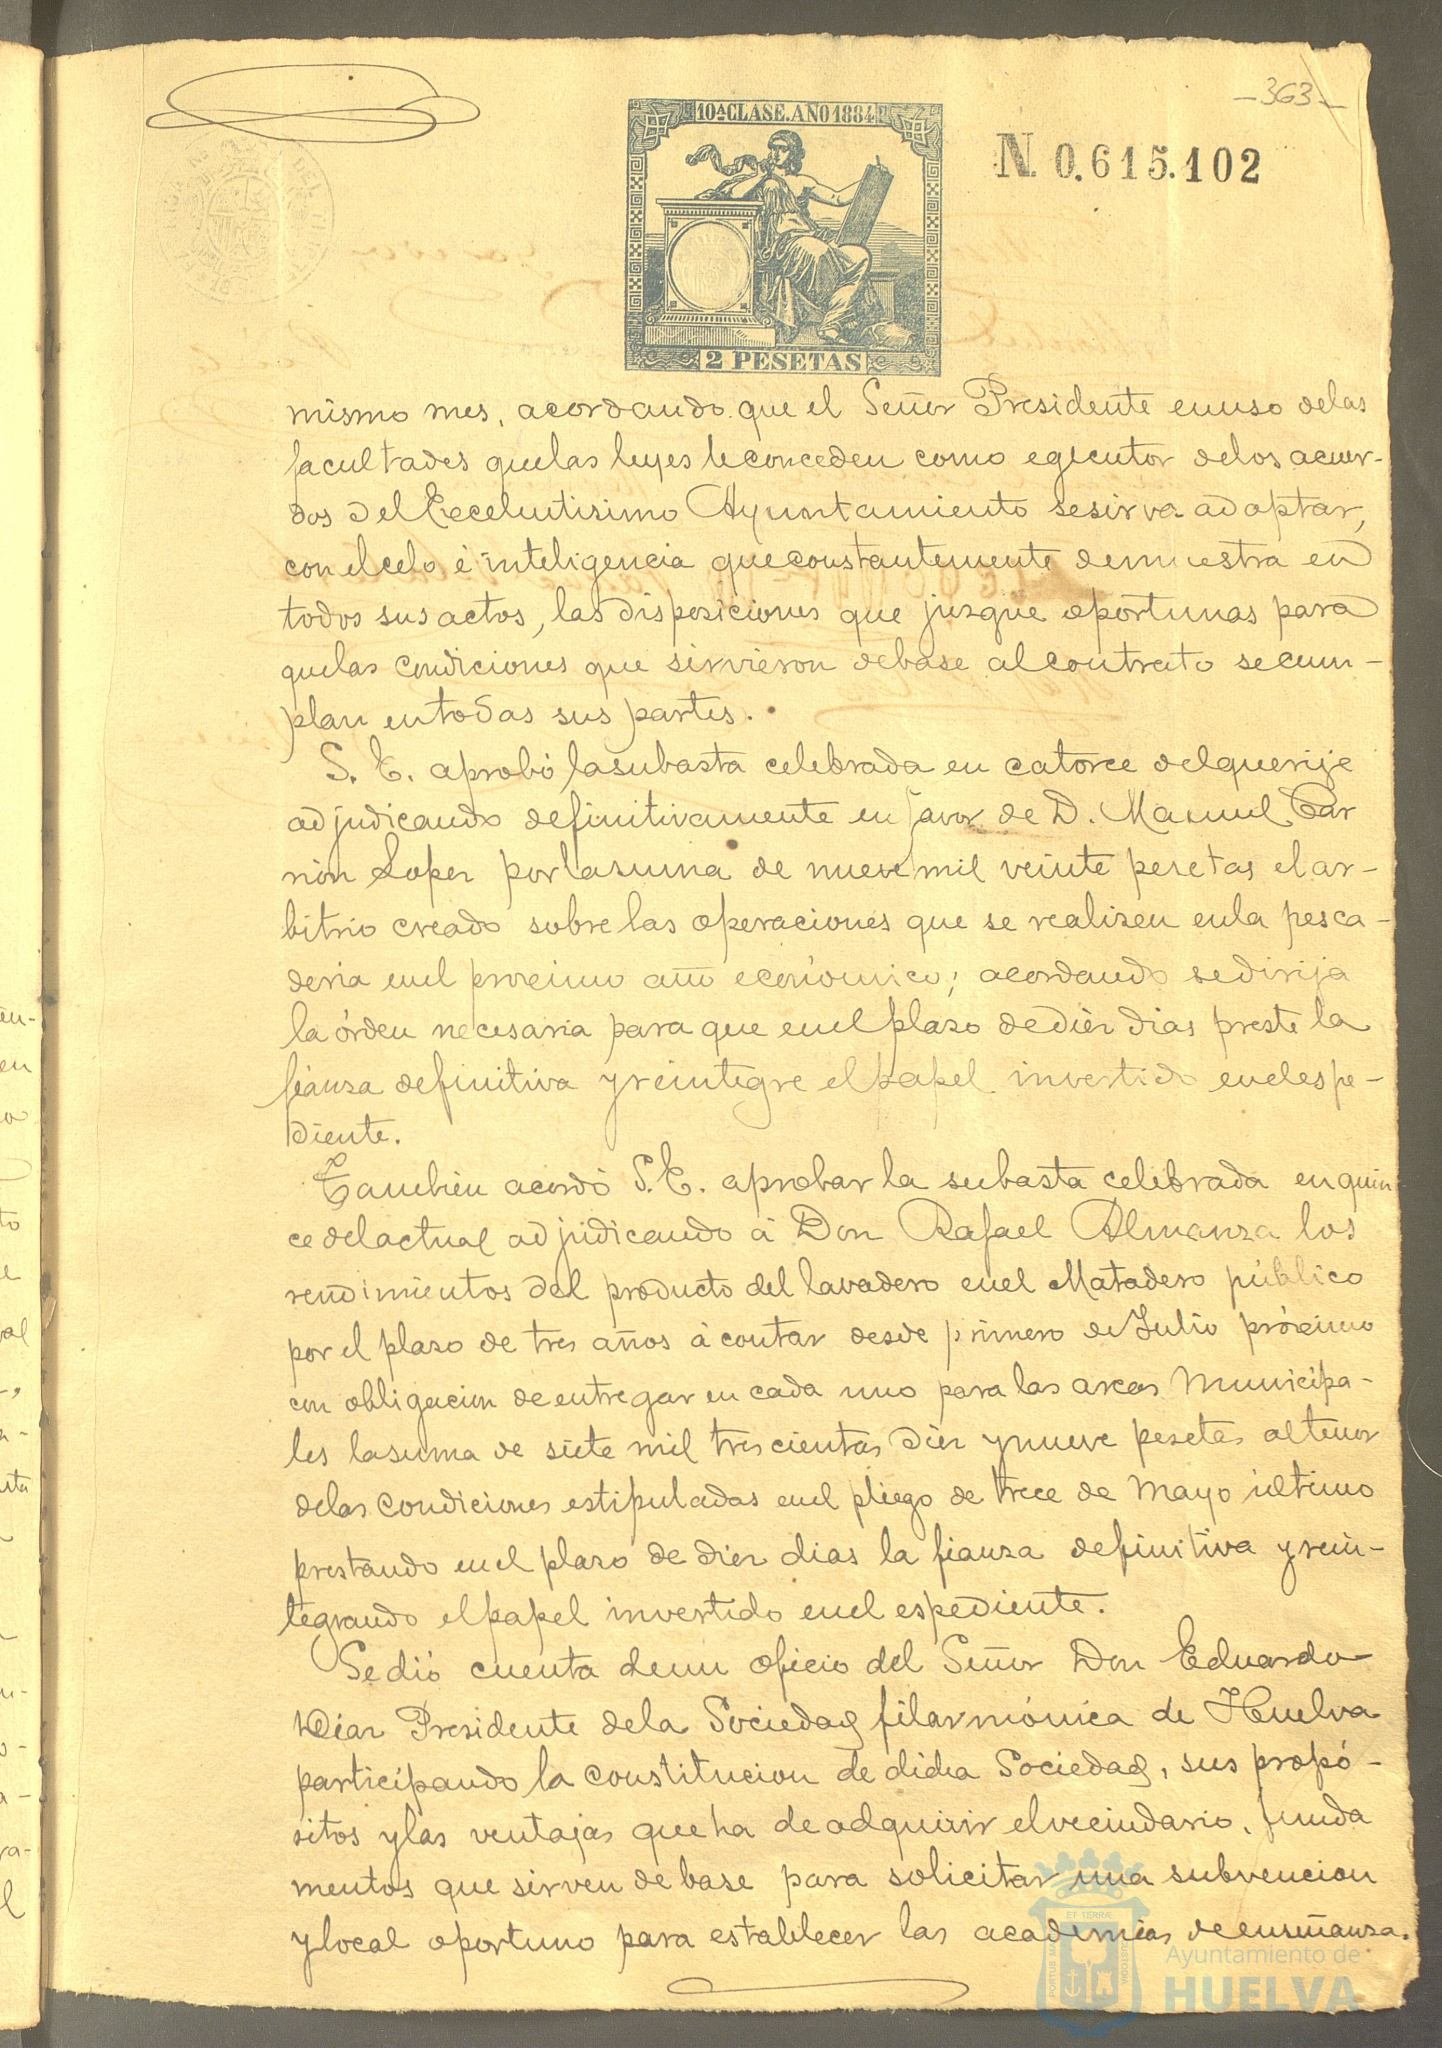 -363-
10ª CLASE. AÑO 1884
N. 0.615.102
2 PESETAS
mismo mes, acordando que el Señor Presidente en uso de las
facultades que las leyes le conceden como egecutor de los acuer-
dos del Excelentisimo Ayuntamiento se sirva adoptar,
con el celo é inteligencia que constantemente demuestra en
todos sus actos, las disposiciones que juzgue oportunas para
que las condiciones que sirvieron de base al contrato se cum-
plan en todas sus partes.
S. E. aprobó la subasta celebrada en catorce del que rije
adjudicando definitivamente en favor de D. Manuel Car
rion Lopez por la suma de nueve mil veinte pesetas el ar-
bitrio creado sobre las operaciones que se realizen en la pesca-
deria en el proximo año económico; acordando se dirija
la órden necesaria para que en el plazo de diez dias preste la
fianza definitiva y reintegre el papel invertido en el espe-
diente.
Tambien acordó S. E. aprobar la subasta celebrada en quin
ce del actual adjudicando á Don Rafael Almanza los
rendimientos del producto del lavadero en el Matadero público
por el plazo de tres años á contar desde primero de Julio próximo
con obligacion de entregar en cada uno para las arcas Municipa-
les la suma de siete mil trescientas diez y nueve pesetas al tenor
de las condiciones estipuladas en el pliego de trece de Mayo último
prestando en el plazo de diez dias la fianza definitiva y rein-
tegrando el papel invertido en el espediente.
Se dió cuenta de un oficio del Señor Don Eduardo
Diaz Presidente de la Sociedad filarmónica de Huelva
participando la constitucion de dicha Sociedad, sus propó-
sitos y las ventajas que ha de adquirir el vecindario, funda
mentos que sirven de base para solicitar una subvencion
y local oportuno para establecer las academias de enseñanza.
ET TERRÆ
PORTUS MARIS
CUSTODIA
Ayuntamiento de
HUELVA